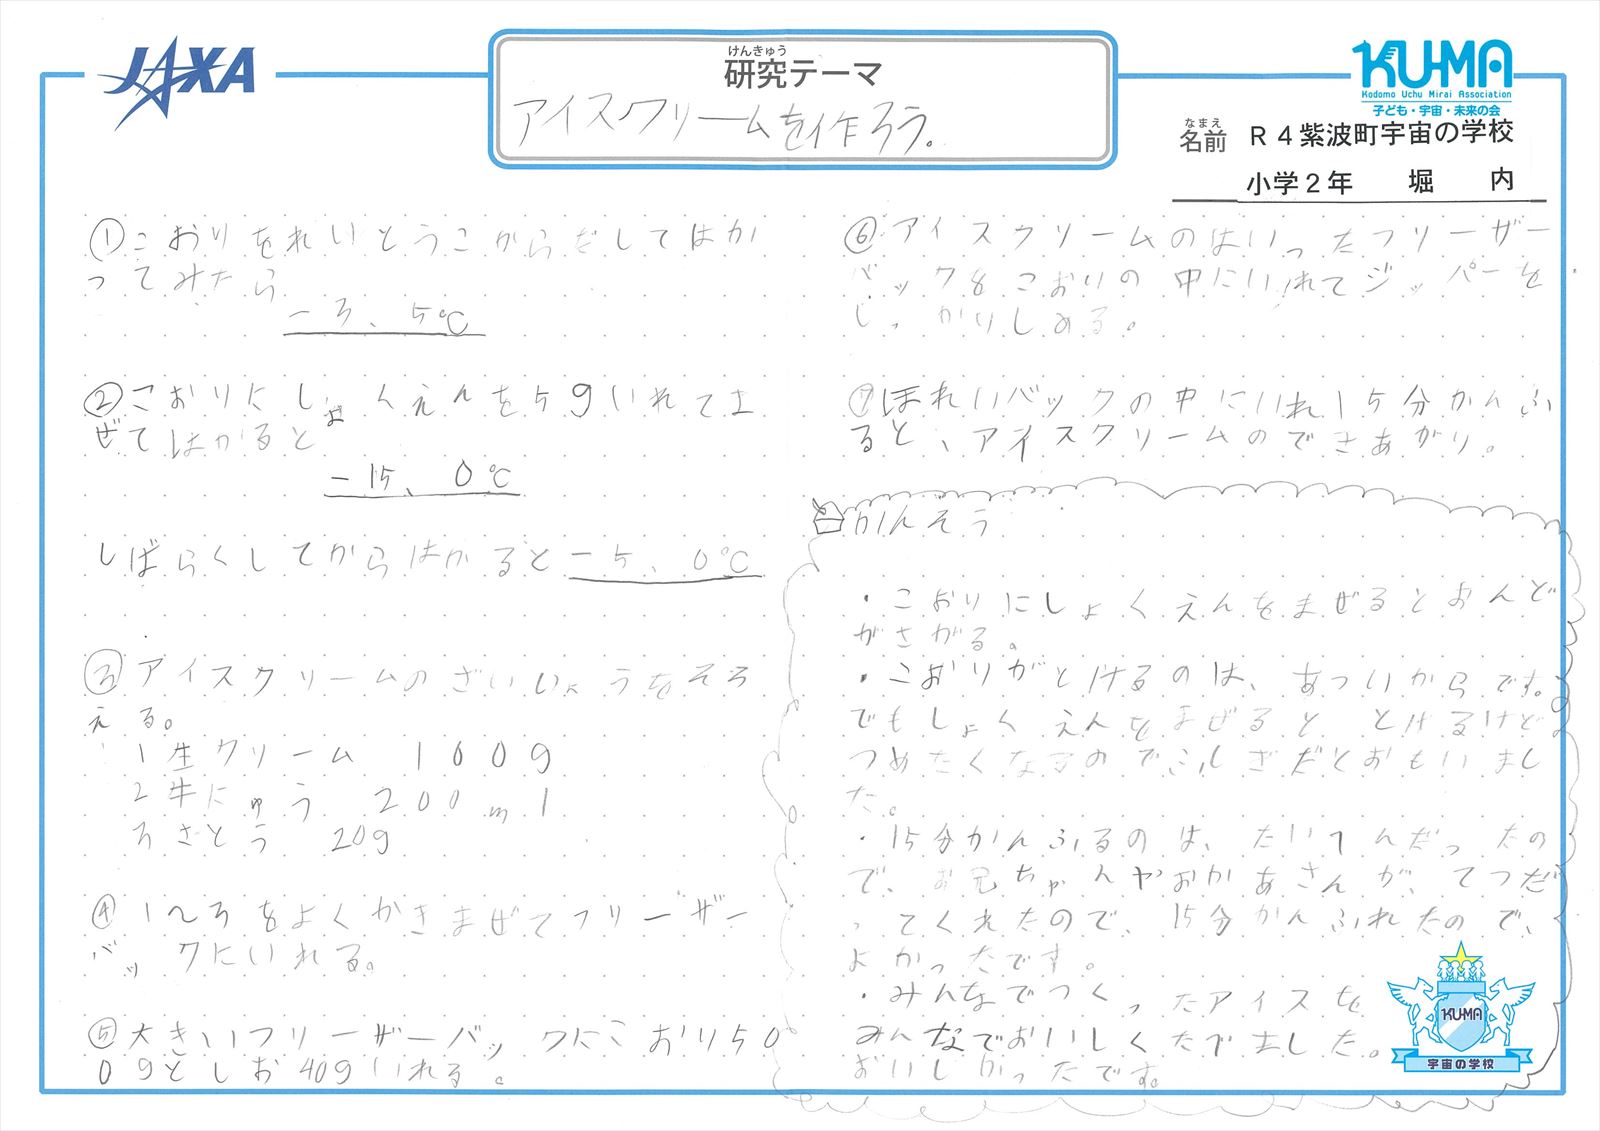 JAXA
けんきゅう
研究テーマ
アイスクリームを作ろう。
KU-MA
Kodomo Uchu Mirai Association
子ども・宇宙・未来の会
なまえ
名前 R4紫波町宇宙の学校
小学2年 堀 内
①こおりをれいとうこからだしてはか
ってみたら
-3、5℃
②こおりにしょくえんを59いれてま
ぜてはかると
-15、0℃
しばらくしてからはかると-5、0℃
③アイスクリームのざいりょうをそろ
える。
1生クリーム 100g
2牛にゅう 200ml
3さとう 20g
④1〜3をよくかきまぜてフリーザー
バックにいれる。
⑤大きいフリーザーバックにこおり50
0gとしお40gいれる。
⑥アイスクリームのはいったフリーザー
バック8こおりの中にいれてジッパーを
しっかりしめる。
⑦ほれいバックの中にいれ15分かんふ
ると、アイスクリームのできあがり。
かんそう
・こおりにしょくえんをまぜるとおんど
がさがる。
・こおりがとけるのは、あついからです。
でもしょくえんをまぜると とけるけど
つめたくなるのでふしぎだとおもいまし
た。
・15分かんふるのは、たいへんだったの
で、お兄ちゃんやおかあさんが、てつだ
ってくれたので、15分かんふれたので、
よかったです。
・みんなでつくったアイスを
みんなでおいしくたべました。
おいしかったです。
KU-MA
宇宙の学校